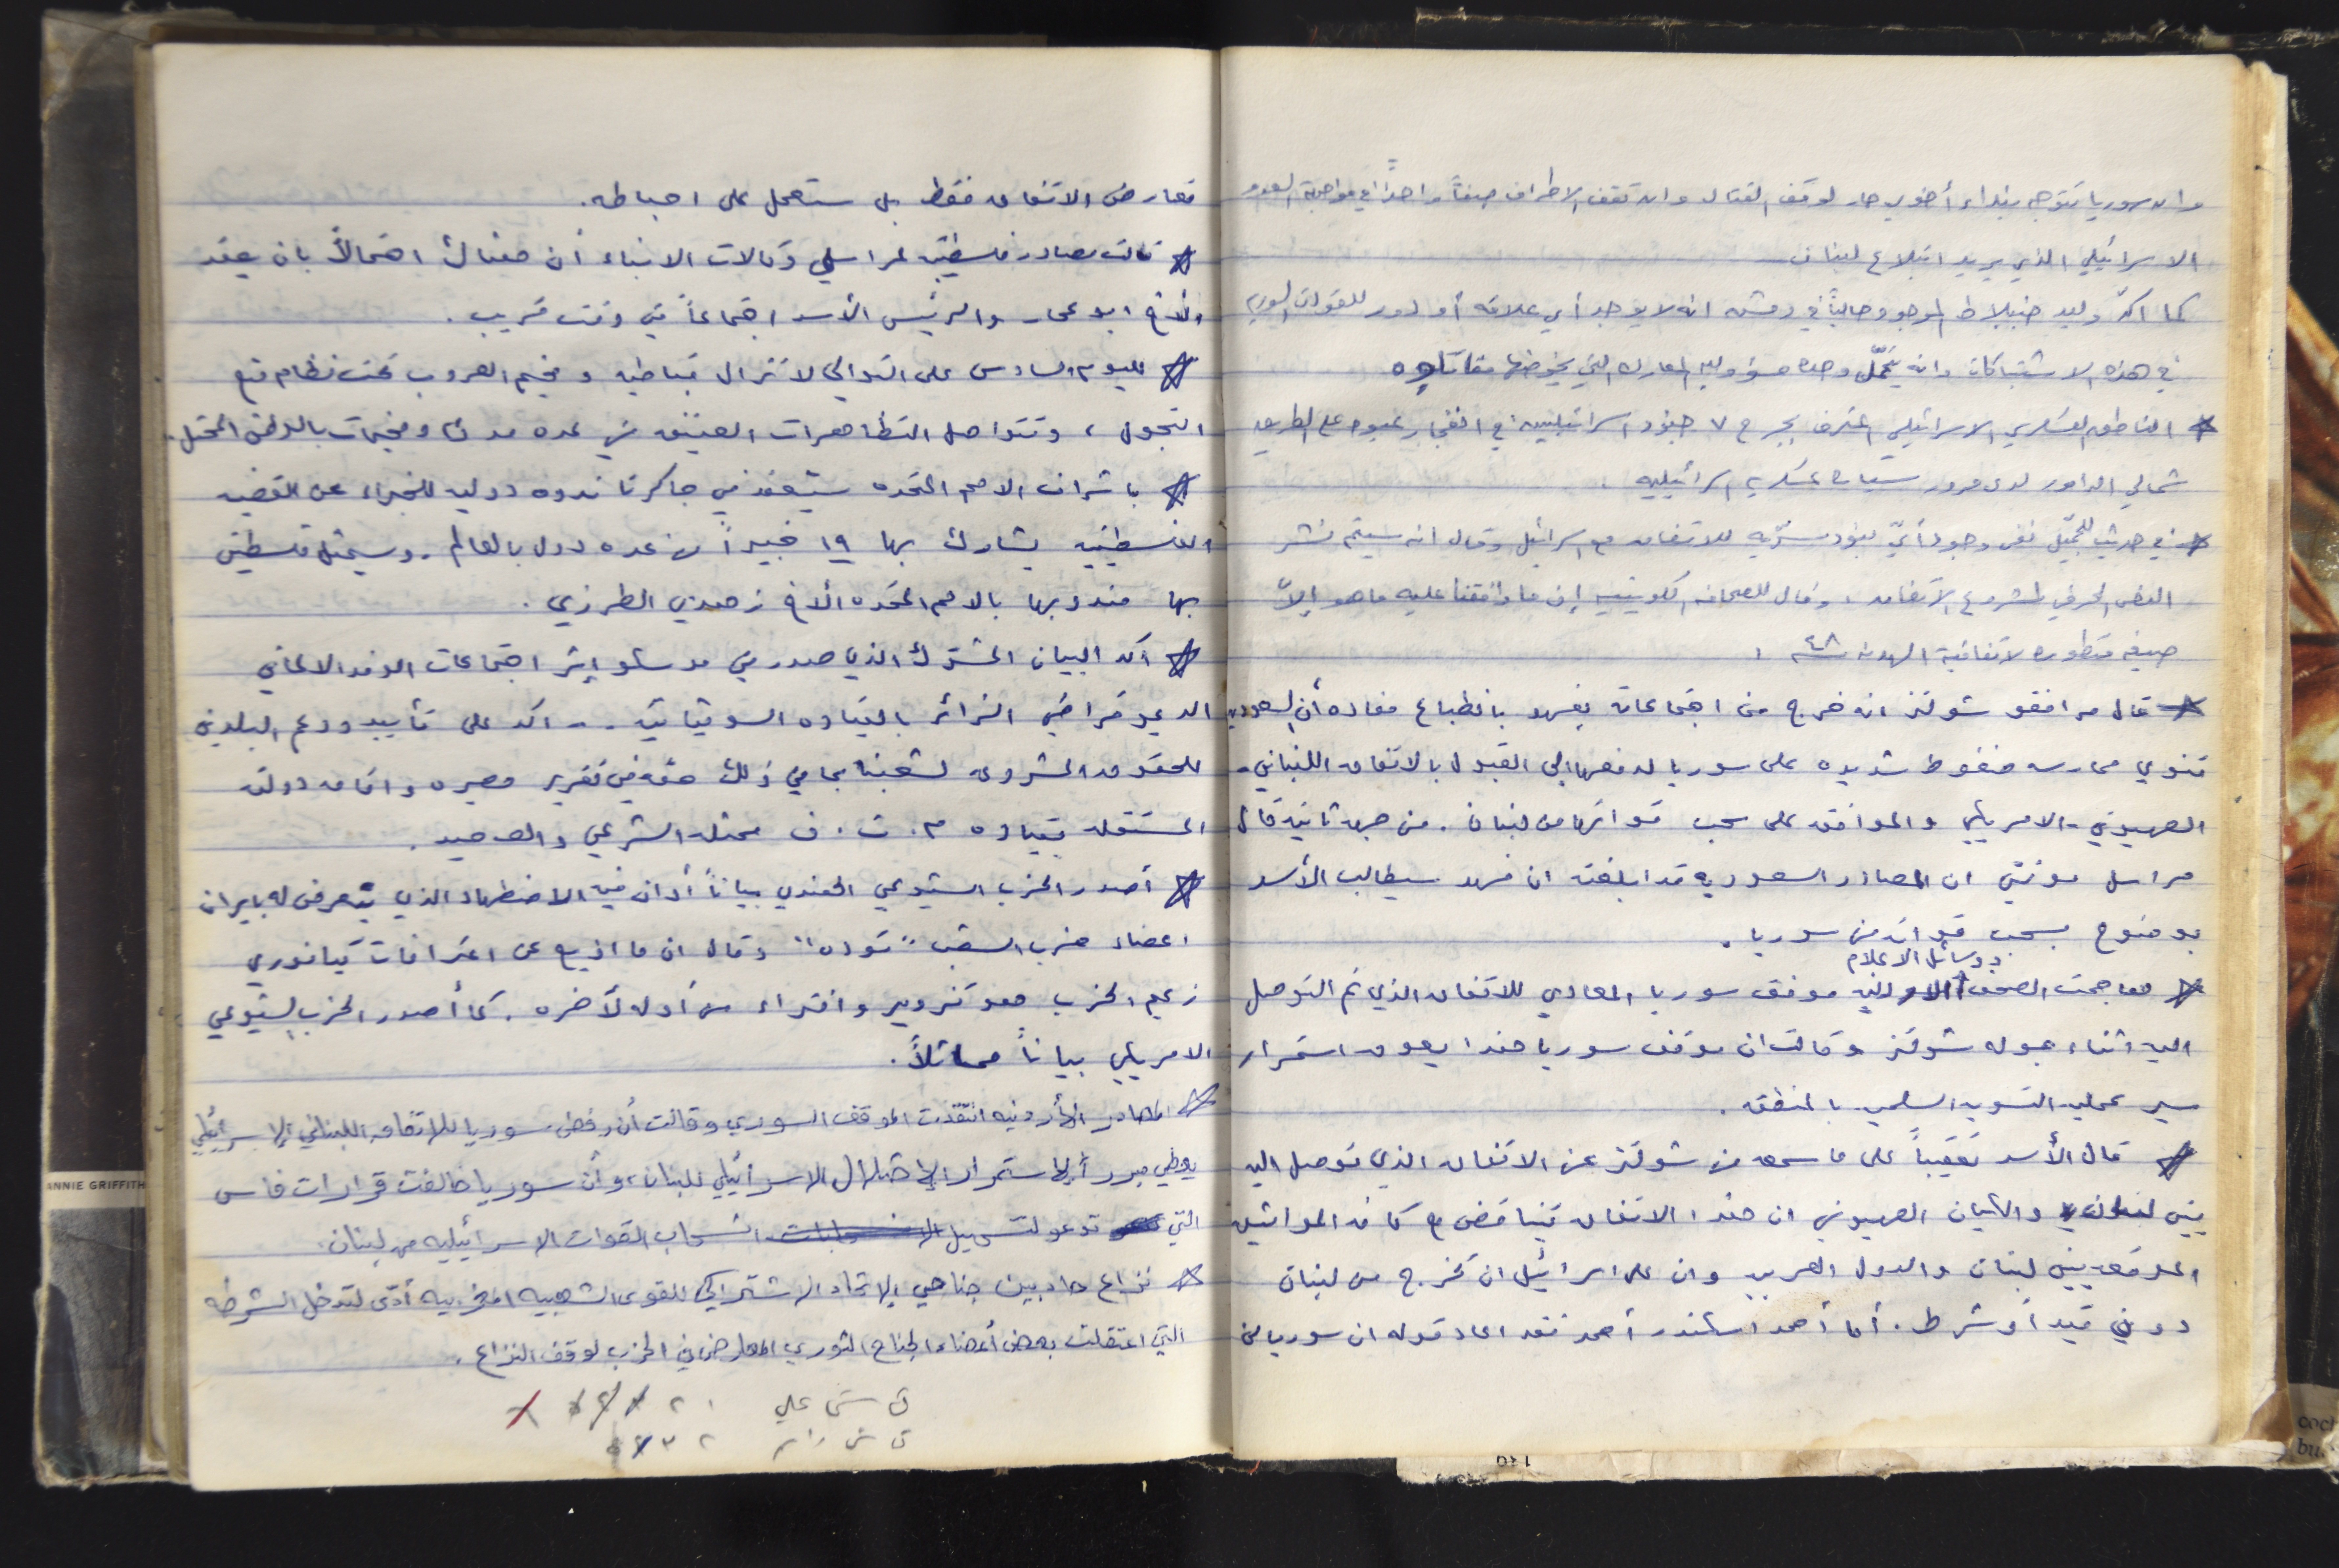 وان سوريا تتوجه بنداء أخوي حار لوقف القتال وان تقف الاطراف صفاً واحداً في مواجهة العدو
الاسرائيلي الذي يريد ابتلاع لبنان
كما اكد وليد جنبلاط الموجود حالياً في دمشق انه لا يوجد أي علاقه أو دور للقوات السوريه
في هذه الاشتباكات وانه يتحمّل وحده مسؤوليه المعارك التي يخوضها مقاتلوه
* الناطق العسكري الاسرائيلي اعترف بجرح ٧ جنود اسرائيليين في انفجار عبوه على الطريق
شمالي الدامور لدى مرور سيارة عسكريه اسرائيليه .
* في حديث للجميّل نفى وجود أيّ بنود سرّيه للاتفاق مع اسرائيل وقال انه سيتم نشر
النص الحرفي لمشروع الاتفاق ، وقال للصحافه الكويتيه إن ما وافقنا عليه ما هو إلاّ
صيغه متطوره لاتفاقية الهدنه سنة ٤٨ .
* قال مرافقو شولتز انه خرج من اجتماعاته بفهد بانطباع مفاده أن السعوديه
تنوي ممارسه ضغوط شديده على سوريا لدفعها إلى القبول بالاتفاق اللبناني-
الصهيوني-الامريكي والموافقه على سحب قواتها من لبنان . من جهه ثانيه قال
مراسل مونتي ان المصادر السعوديه قد ابلغته ان فهد سيطالب الأسد
بوضوح بسحب قواته من سوريا .
ووسائل الاعلام
* هاجمت الصحف الاردنيه موقف سوريا المعادي للاتفاق الذي تم التوصل
اليه اثناء جوله شولتز وقالت ان موقف سوريا هذا يعوق استمرار
سير عمليه التسويه السلميه بالمنطقه .
* قال الأسد تعقيباً على ما سمعه من شولتز عن الاتفاق الذي توصل اليه
بين لبنان والكيان الصهيوني ان هذا الاتفاق يتناقض مع كافه المواثيق
الموقعه بين لبنان والدول العربيه وان على اسرائيل ان تخرج من لبنان
دون قيد أو شرط . أما أحمد اسكندر أحمد فقد اعاد قوله ان سوريا لن
تعارض الاتفاق فقط بل ستعمل على احباطه .
* قالت مصادر فلسطينيه لمراسلي وكالات الانباء أن هناك احتمالاً بان يعقد
الأخ ابو عمار والرئيس الأسد اجتماعاً في وقت قريب .
* لليوم السادس على التوالي لا تزال قباطيه ومخيم العروب تحت نظام منع
التجول ، وتتواصل التظاهرات العنيفه في عده مدن ومخيمات بالوطن المحتل .
* باشراف الامم المتحده ستعقد في جاكرتا ندوه دوليه للخبراء عن القضيه
الفلسطينيه يشارك بها ١٩ خبيراً من عده دول بالعالم . وسيمثل فلسطين
بها مندوبها بالامم المتحده الأخ زهدي الطرزي .
* اكد البيان المشترك الذي صدر في موسكو إثر اجتماعات الوفد الالماني
الديموقراطي الزائر بالقياده السوفياتيه .. اكد على تأييد ودعم البلدين
للحقوق المشروعه لشعبنا بما في ذلك حقه في تقرير مصيره واقامه دولته
المستقله بقياده م . ت . ف ممثله الشرعي والوحيد .
* أصدر الحزب الشيوعي الهندي بياناً أدان فيه الاضطهاد الذي يتعرض له بايران
اعضاء حزب الشعب "توده" وقال ان ما اذيع عن اعترافات كيانوري
زعيم الحزب هو تزوير وافتراء من أوله لآخره . كما أصدر الحزب الشيوعي
الامريكي بياناً مماثلاً .
* المصادر الأردنيه انتقدت الموقف السوري وقالت أن رفض سوريا للإتفاق اللبناني الإسرائيلي
يعطي مبرراً لإستمرار الإحتلال الاسرائيلي للبنان ، وأن سوريا خالفت قرارات فاس
التي تدعو لتسهيل انسحاب القوات الاسرائيليه من لبنان .
* نزاع حاد بين جناحي الإتحاد الإشتراكي للقوى الشعبيه المغربيه أدّى لتدخل الشرطه
التي اعتقلت بعض أعضاء الجناح الثوري المعارض في الحزب لوقف النزاع .